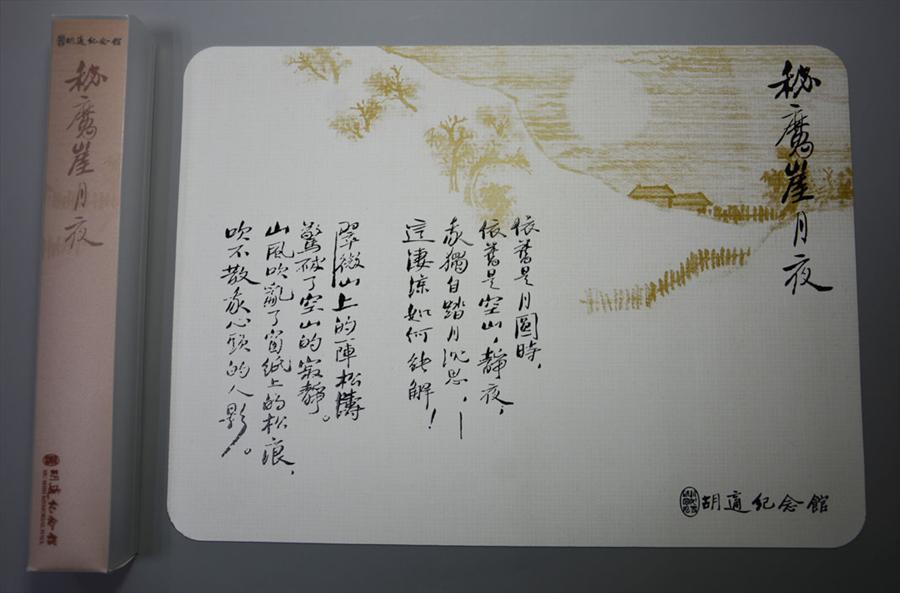 胡適紀念館
秘魔崖月夜
胡適紀念館
秘魔崖月夜
依舊是月圓時,
依舊是空山,靜夜,
我獨自踏月沈思,—
這淒涼如何能解!
翠微山上的一陣松濤
驚破了空山的寂靜。
山風吹亂了窗紙上的松痕,
吹不散我心頭的人影。
胡適紀念館